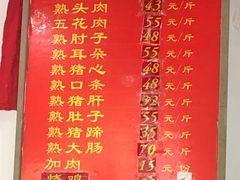 熟头肉 43元/斤
五花肉 55元/斤
熟肘子 48元/斤
熟耳朵 55元/斤
熟猪心 48元/斤
熟口条 55元/斤
熟猪肝 48元/斤
熟猪肚 92元/斤
熟猪蹄 55元/斤
熟大肠 70元/斤
加肉 15元/份
烧鸡